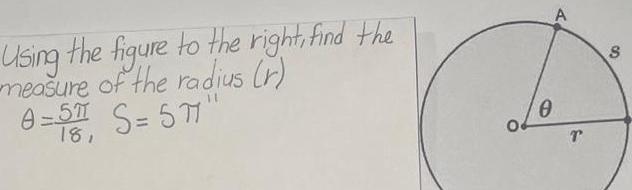 Using the figure to the right, find the
measure of the radius (r)
θ = 5π/18, S = 5π"
A
s
θ
O
r